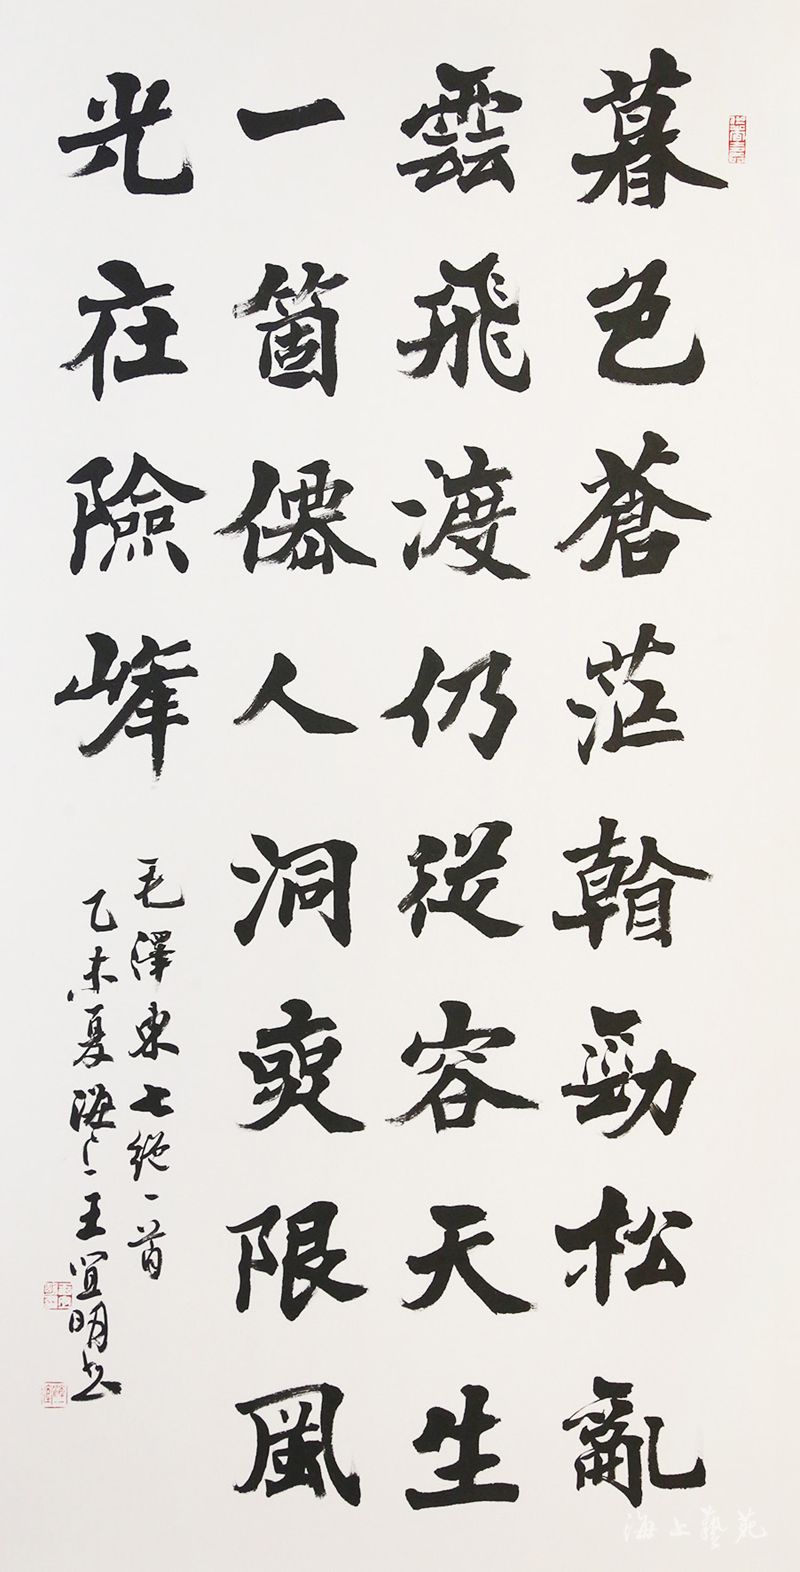 暮色蒼茫看勁松亂
雲飛渡仍從容天生
一箇僊人洞無限風
光在險峰
毛澤東七絶一首
乙未夏海上王宜明书
海上藝苑